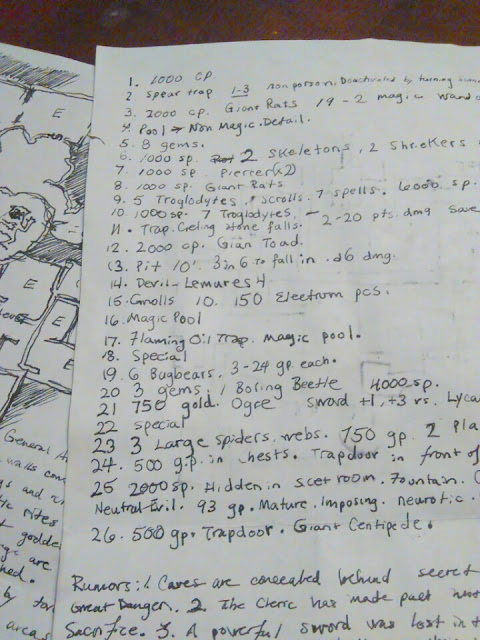 E
E
E
E
General
walls con
gs and
tic rites
t godde
gic are
hed.
by tor
areas
1. 1000 CP.
2 Spear trap 1-3 non poison. Deactivated by turning
3. 2000 cp. Giant Rats 19-2 magic wand
4 Pool → Non Magic. Detail.
5. 8 gems.
6. 1000 sp. 2 Skeletons, 2 Shriekers
7. 1000 sp. Piercer(x2)
8. 1000 sp. Giant Rats
9. 5 Troglodytes, scrolls. 7 spells. 6000 sp.
10. 1000 sp. 7 Troglodytes, -
11. Trap. Cieling stone falls. 2-20 pts. dmg Save
12. 2000 cp. Gian Toad.
13. Pit 10'. 3 in 6 to fall in. d6 dmg.
14. Devil - Lemures 4
15. Gnolls 10. 150 Electrum pcs.
16. Magic Pool
17. Flaming Oil Trap. Magic pool.
18. Special
19. 6 Bugbears, 3-24 gp each.
20 3 gems, 1 Boring Beetle 4000 sp.
21 750 gold. Ogre Sword +1, +3 vs. Lyca
22 Special
23 3 Large Spiders. webs. 750 gp. 2 Pla
24. 500 g.p. in chests. Trapdoor in front of
25 2000 sp. Hidden in scet room. Fountain. C
Neutral Evil. 93 gp. Mature. Imposing. neurotic.
26. 500 gp. Trapdoor. Giant Centipede.
Rumors: 1 Caves are concealed behind secret
Great Danger. 2. The Cleric has made pact
Sacrifice. 3. A powerful sword was lost in t